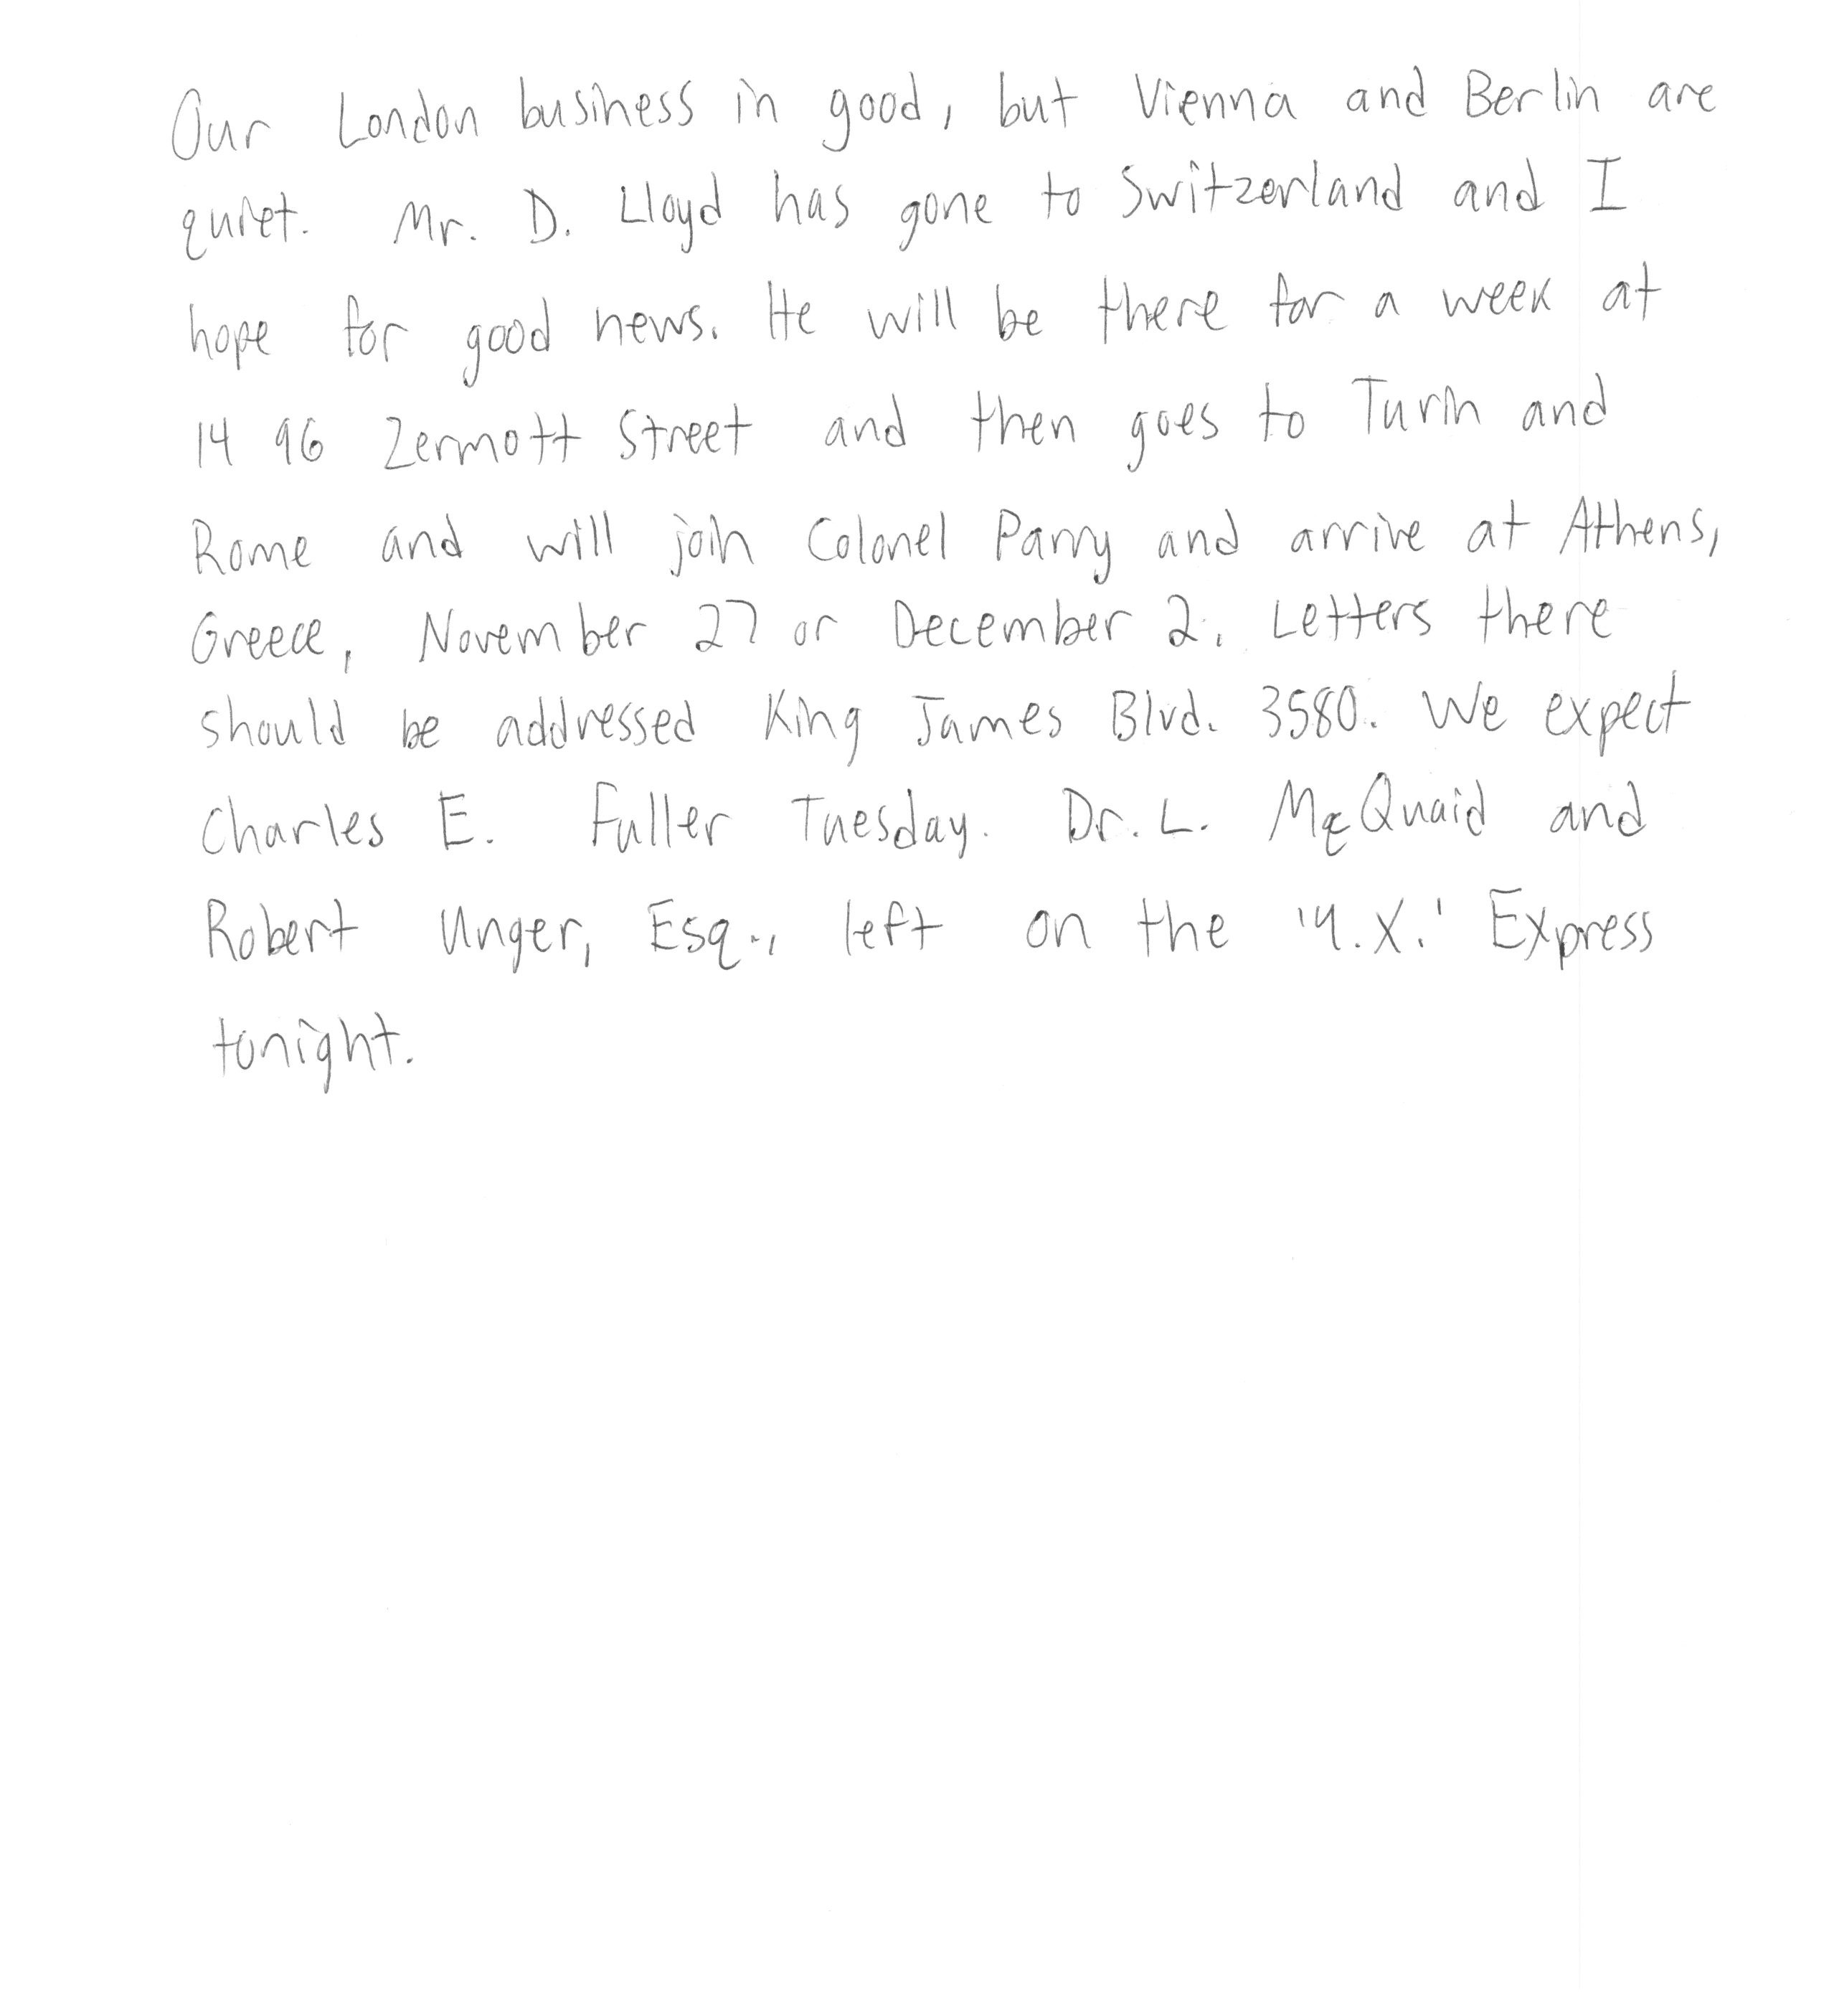 Our London business in good, but Vienna and Berlin are
quiet. Mr. D. Lloyd has gone to Switzerland and I
hope for good news. He will be there for a week at
14 96 Zermott Street and then goes to Turin and
Rome and will join Colonel Parry and arrive at Athens,
Greece, November 27 or December 2. Letters there
should be addressed King James Blvd. 3580. We expect
Charles E. Fuller Tuesday. Dr. L. McQuaid and
Robert Unger, Esq., left on the 'Y.X.' Express
tonight.